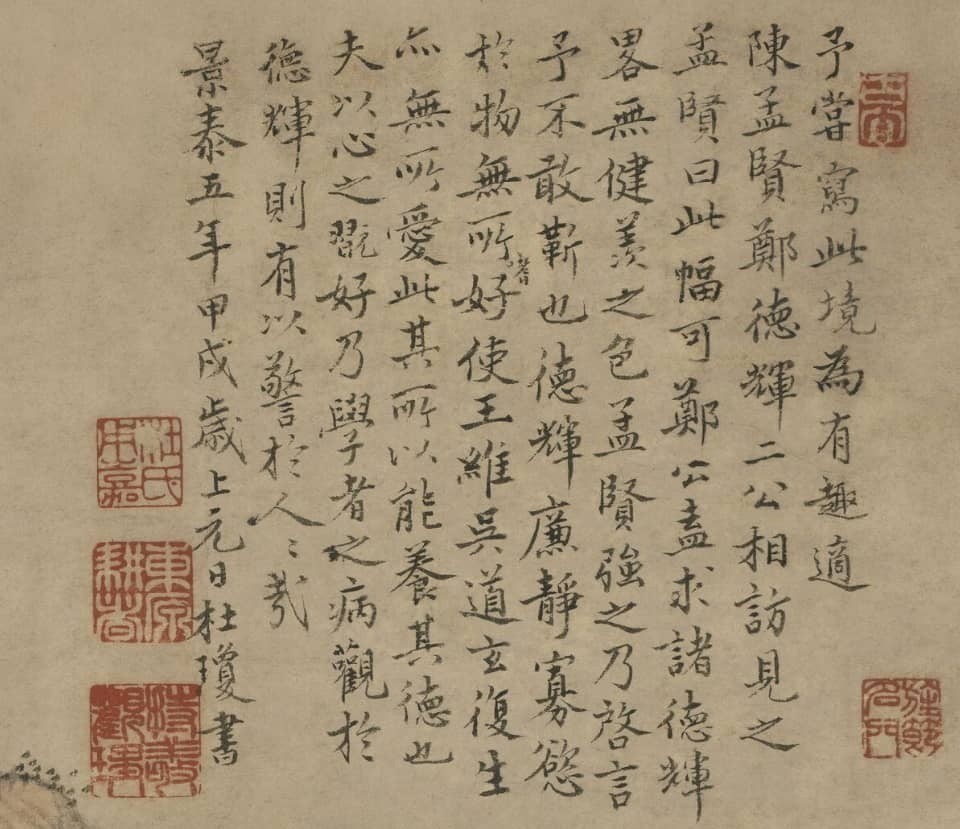 予嘗寫此境為有趣適
陳孟賢鄭德輝二公相訪見之
孟賢曰此幅可鄭公盍求諸德輝
畧無健羨之色孟賢強之乃啓言
予不敢蘄也德輝廉靜寡慾
於物無所嗜好使王維吳道玄復生
亦無所愛此其所以能養其德也
夫以心之翫好乃學者之病觀於
德輝則有以警於人〻哉
景泰五年甲戌歲上元日杜瓊書
杜氏用嘉
東原耕者